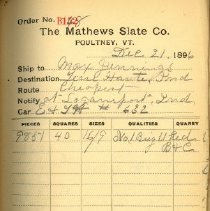 Order No. B152
The Mathews Slate Co.
POULTNEY, VT.
Dec 21, 1896
Ship to Max Jennings
Destination Terre Haute, Ind
Route Cheapest
Notify at Logansport, Ind.
Car # 632
PIECES SQUARES SIZES QUALITIES QUARRY
9251 40 16/9 No 1 Bright Red